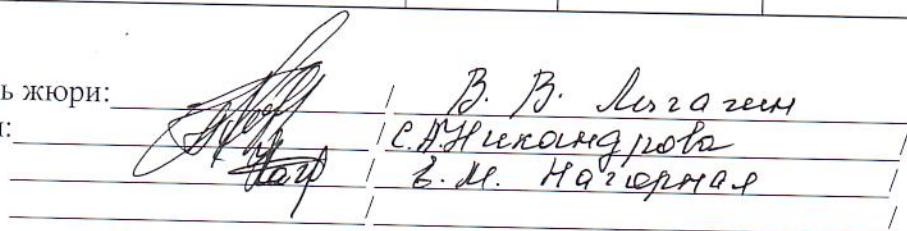 ь жюри: / В. В. Лызгачин /
: / С. А. Никандрова /
/ В. М. Нагорная /
/ /